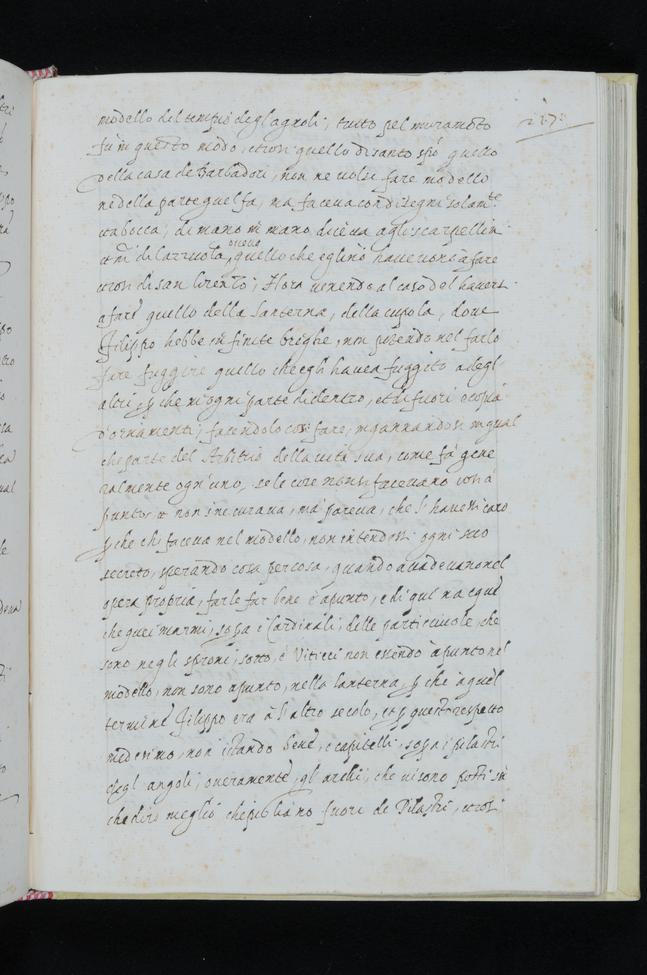 modello del tempio degl'agnoli, tutto pel muramẽto
fu in questo modo, et così quello di santo spõ quello
della casa de Barbadori, non ne volse fare modello
ne della parte guelfa, ma faceva con disegni solamte
et a bocca, di mano in mano diceva agli scarpellin
et mi di cazzuola, diceva quello che eglino havevono à fare
et così di san Lorenzo; Hora venendo al caso del havere
a fare quello della lanterna, della cupola, dove
Filippo hebbe infinite brighe, non potendo nel farlo
fare fuggire quello che egli havea fuggito a degl
altri, p che in ogni parte di dentro, et di fuori copia
d'ornamenti, facendolo così fare, ingannandosi in qual
che parte del Arbitrio della vita sua, come fà gene
ralmente ogn'uno, se le cose non si facevano così à
punto, non sine curava, ma pareva, che l'havessi caro
p che chi faceva nel modello, non intendessi ogni suo
secreto, sperando cosa per cosa, quando accadevano nel
opera propria, farle far bene è apunto, e di qui nacque
che quei marmi, sopa i Cardinali, delle particciuole, che
sono negli sproni, sotto, è Viticci non essendo à punto nel
modello, non sono apunto, nella lanterna, p che à quel
termine Filippo era à l'altro secolo, et p questo rispetto
medesimo, non istando bene, e capitelli, sopa i pilastri
degl angoli, overamente, gl archi, che vi sono fatti sù
che dirò meglio che sbiliano fuori de Pilastri, et così